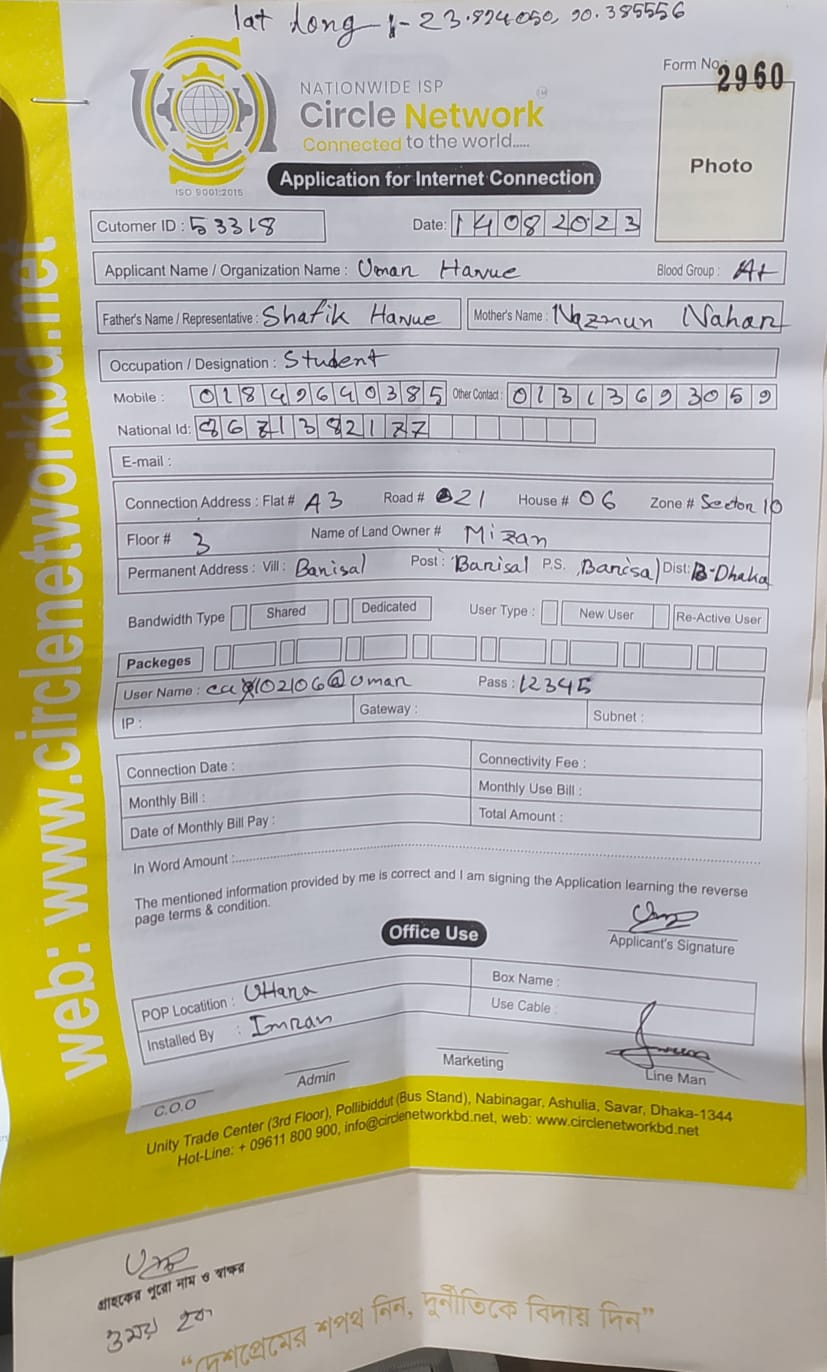 lat long :- 23.874050, 90.385556
Form No. 2960
NATIONWIDE ISP
Circle Network
Connected to the world.....
ISO 9001:2015
Application for Internet Connection
Photo
Cutomer ID : 53318
Date: 14082023
Applicant Name / Organization Name : Umar Haque
Blood Group : A+
Father's Name / Representative : Shafik Haque
Mother's Name : Nazmun Nahar
Occupation / Designation : Student
Mobile : 01849640385 Other Contact : 01313693059
National Id: 8671382177
E-mail :
Connection Address : Flat # A3 Road # 21 House # 06 Zone # Sector 10
Floor # 3 Name of Land Owner # Mizan
Permanent Address : Vill : Barisal Post : Barisal P.S. Barisal Dist: B-Dhaka
Bandwidth Type Shared Dedicated User Type : New User Re-Active User
Packeges
User Name : 102106@umar Pass : 12345
IP : Gateway : Subnet :
Connection Date : Connectivity Fee :
Monthly Bill : Monthly Use Bill :
Date of Monthly Bill Pay : Total Amount :
In Word Amount :
The mentioned information provided by me is correct and I am signing the Application learning the reverse
page terms & condition.
Applicant's Signature
Office Use
POP Locatition : Uttara Box Name :
Installed By : Imran Use Cable :
C.O.O Admin Marketing Line Man
Unity Trade Center (3rd Floor), Pollibiddut (Bus Stand), Nabinagar, Ashulia, Savar, Dhaka-1344
Hot-Line: + 09611 800 900, info@circlenetworkbd.net, web: www.circlenetworkbd.net
web: www.circlenetworkbd.net
গ্রাহকের পুরো নাম ও স্বাক্ষর
ওমর হক
“দেশপ্রেমের শপথ নিন, দুর্নীতিকে বিদায় দিন”